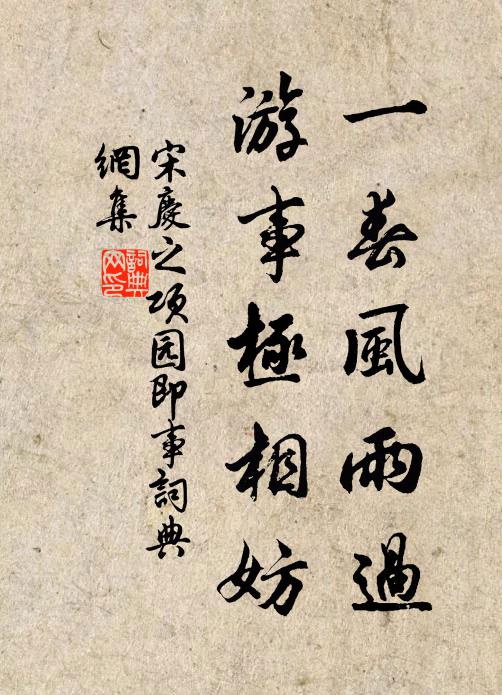 一春風雨過
游事極相妨
宋慶之项园即事詞典
網集
詞典
网印